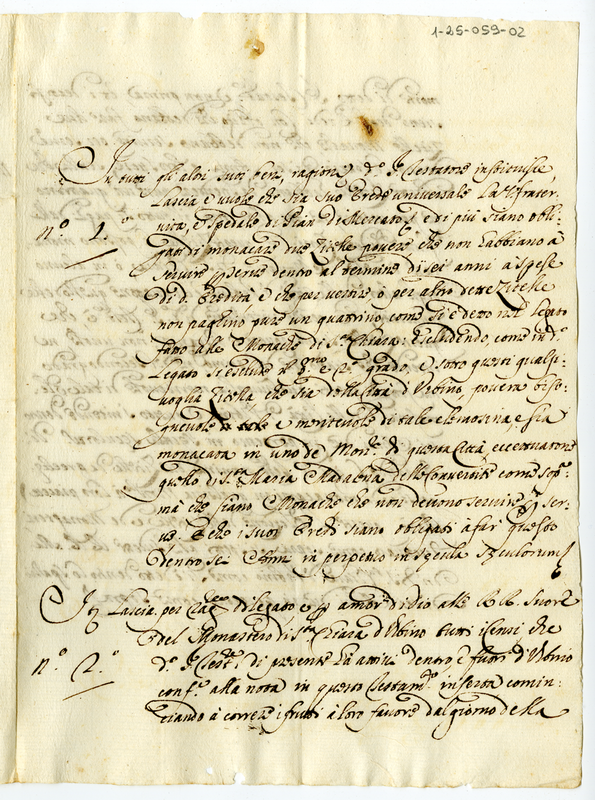 1-25-059-02
In tutti gli altri suoi beni, ragioni, d.º S. Testatore instituisce,
Lascia e vuole che sia suo Erede universale La Frater
nita, e Spedale di Pian di Mercato, e di più siano obli-
n.º 1.º
gati di monacare due Zitelle povere, che non habbiano à
servire per serve dentro al termine di sei anni a spese
di d. Eredità e che per vestire, ò per altro dette Zitelle
non paghino pure un quattrino, come si è detto nel Legato
fatto alle Monache di S. Chiara: Escludendo, come in d.º
Legato si esclude il p.mo e 2.º grado, e sotto questi qualsi-
voglia Zitella che sia della Città d'Urbino, povera biso-
gnevole e meritevole di tale elemosina, e sia
monacata in uno de Mon.rii di questa Città, eccettuatone
quello di S.ta Maria Madalena delle Convertite come sop.ª
mà che siano Monache che non devono servire per ser-
ve. E che i suoi Eredi siano obligati a far questo
dentro sei Anni in perpetuo in secula seculorum
It. Lascia per rag.e di legato e per amor di dio alle RR. Suore
del Monastero di S.ta Chiara d'Urbino tutti i Censi che
n.º 2.º
d.º S. Test.e di presente hà attivi dentro e fuori d'Urbino
conf.e alla nota in questo Testam.to inserta comin-
ciando à correre i frutti à loro favore dal giorno della